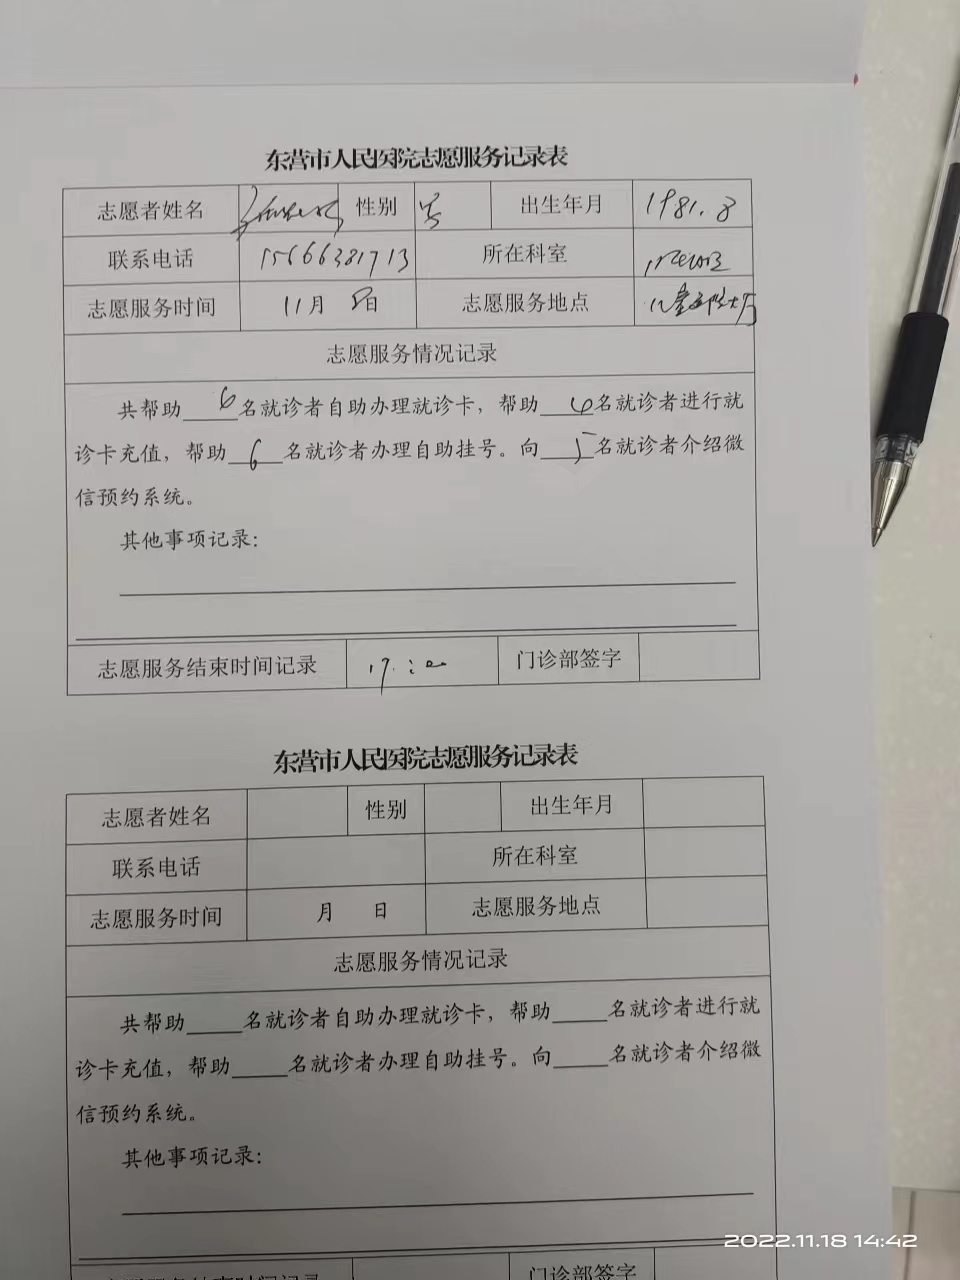 东营市人民医院志愿服务记录表
志愿者姓名 性别 男 出生年月 1981.8
联系电话 15666381713 所在科室
志愿服务时间 11月 8日 志愿服务地点
志愿服务情况记录
共帮助 6 名就诊者自助办理就诊卡，帮助 6 名就诊者进行就
诊卡充值，帮助 6 名就诊者办理自助挂号。向 5 名就诊者介绍微
信预约系统。
其他事项记录：
志愿服务结束时间记录 17:00 门诊部签字
东营市人民医院志愿服务记录表
志愿者姓名 性别 出生年月
联系电话 所在科室
志愿服务时间 月 日 志愿服务地点
志愿服务情况记录
共帮助____名就诊者自助办理就诊卡，帮助____名就诊者进行就
诊卡充值，帮助____名就诊者办理自助挂号。向____名就诊者介绍微
信预约系统。
其他事项记录：
志愿服务结束时间记录 门诊部签字
2022.11.18 14:42